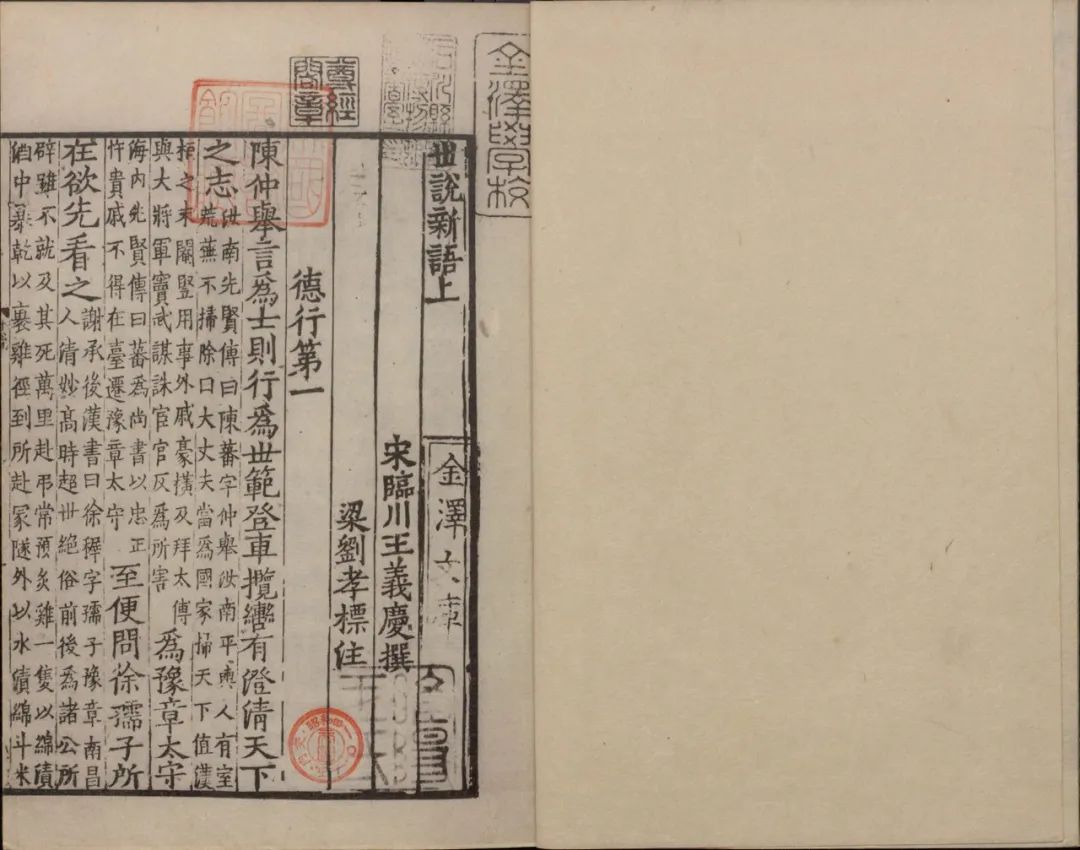 金澤學校
尊經閣章
世說新語上
金澤文庫
宋臨川王義慶撰
梁劉孝標注
德行第一
陳仲舉言爲士則行爲世範登車攬轡有澄清天下
之志
汝南先賢傳曰陳蕃字仲舉汝南平輿人有室
荒蕪不掃除曰大丈夫當爲國家掃天下值漢
桓之末閹豎用事外戚豪橫及拜太傅
與大將軍竇武謀誅宦官反爲所害
爲豫章太守
海内先賢傳曰蕃爲尚書以忠正
忤貴戚不得在臺遷豫章太守
至便問徐孺子所
在欲先看之
謝承後漢書曰徐穉字孺子豫章南昌
人清妙高時超世絕俗前後爲諸公所
辟雖不就及其死萬里赴弔常預炙雞一隻以綿漬
酒中暴乾以裹雞徑到所赴冢隧外以水漬綿斗米